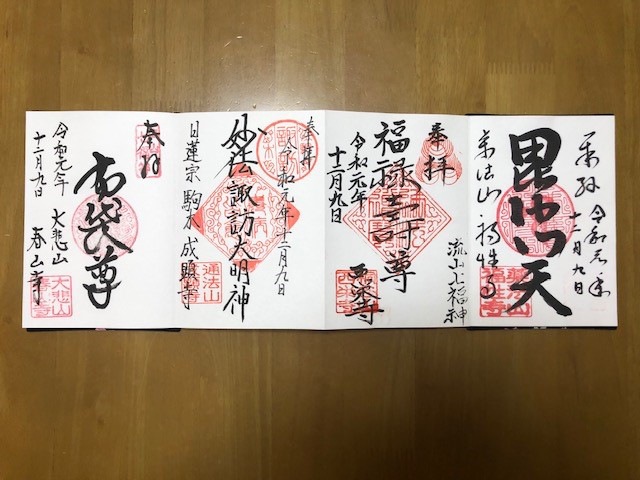 奉拝 令和元年
十二月九日
毘沙門天
福性寺
奉拝
流山七福神
福禄壽尊
令和元年
十二月九日
西栄寺
奉拝
令和元年十二月九日
妙法諏訪大明神
日蓮宗 駒木 成顕寺
通法山
奉拝
布袋尊
令和元年
十二月九日
大悲山
春山寺
大悲山